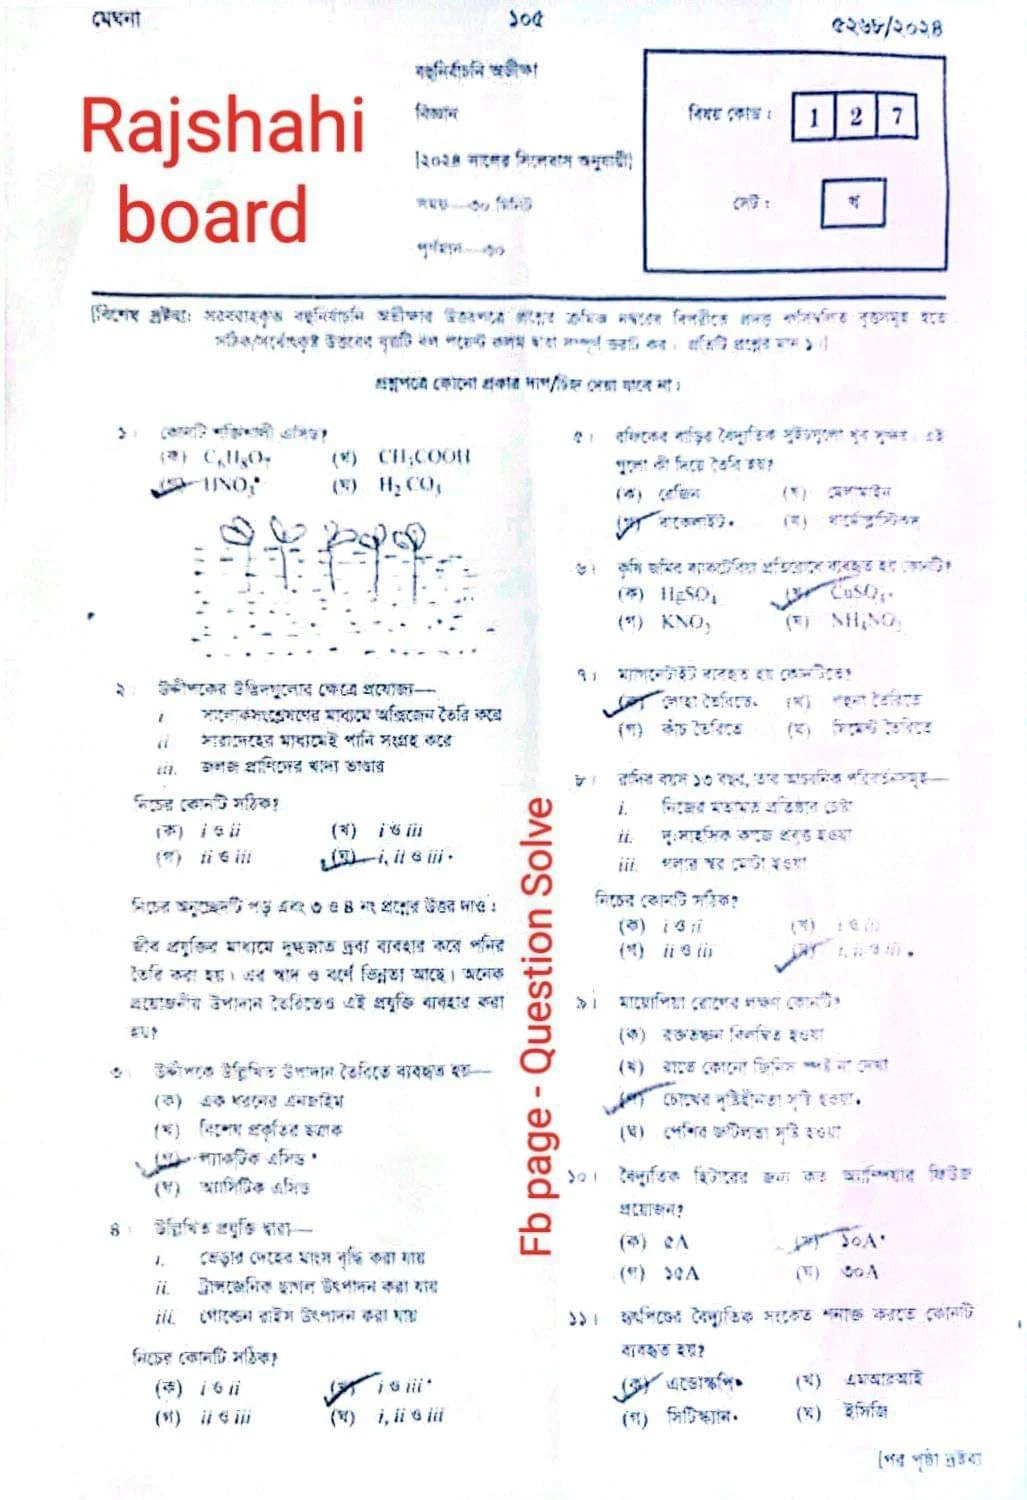 মেঘনা
১০৫
৫২৬৮/২০২৪
Rajshahi
board
বহুনির্বাচনি অভীক্ষা
বিজ্ঞান
[২০২৪ সালের সিলেবাস অনুযায়ী]
সময়—৩০ মিনিট
পূর্ণমান—৩০
বিষয় কোড : 1 2 7
সেট : খ
[বিশেষ দ্রষ্টব্য: সরবরাহকৃত বহুনির্বাচনি অভীক্ষার উত্তরপত্রে প্রশ্নের ক্রমিক নম্বরের বিপরীতে প্রদত্ত বর্ণসম্বলিত বৃত্তসমূহ হতে
সঠিক/সর্বোৎকৃষ্ট উত্তরের বৃত্তটি বল পয়েন্ট কলম দ্বারা সম্পূর্ণ ভরাট কর। প্রতিটি প্রশ্নের মান ১।]
প্রশ্নপত্রে কোনো প্রকার দাগ/চিহ্ন দেয়া যাবে না।
১। কোনটি শক্তিশালী এসিড?
(ক) C₆H₈O₇ (খ) CH₃COOH
(গ) HNO₃ (ঘ) H₂CO₃
২। উদ্দীপকের উদ্ভিদগুলোর ক্ষেত্রে প্রযোজ্য—
i. সালোকসংশ্লেষণের মাধ্যমে অক্সিজেন তৈরি করে
ii. সারাদেহের মাধ্যমেই পানি সংগ্রহ করে
iii. জলজ প্রাণিদের খাদ্য ভাণ্ডার
নিচের কোনটি সঠিক?
(ক) i ও ii (খ) i ও iii
(গ) ii ও iii (ঘ) i, ii ও iii
নিচের অনুচ্ছেদটি পড় এবং ৩ ও ৪ নং প্রশ্নের উত্তর দাও :
জীব প্রযুক্তির মাধ্যমে দুগ্ধজাত দ্রব্য ব্যবহার করে পনির
তৈরি করা হয়। এর স্বাদ ও বর্ণে ভিন্নতা আছে। অনেক
প্রয়োজনীয় উপাদান তৈরিতেও এই প্রযুক্তি ব্যবহার করা
হয়?
৩। উদ্দীপকে উল্লিখিত উপাদান তৈরিতে ব্যবহৃত হয়—
(ক) এক ধরনের এনজাইম
(খ) বিশেষ প্রকৃতির ছত্রাক
(গ) ল্যাকটিক এসিড
(ঘ) অ্যাসিটিক এসিড
৪। উল্লিখিত প্রযুক্তি দ্বারা—
i. ভেড়ার দেহের মাংস বৃদ্ধি করা যায়
ii. ট্রান্সজেনিক ছাগল উৎপাদন করা যায়
iii. গোল্ডেন রাইস উৎপাদন করা যায়
নিচের কোনটি সঠিক?
(ক) i ও ii (খ) i ও iii
(গ) ii ও iii (ঘ) i, ii ও iii
Fb page - Question Solve
৫। রফিকের বাড়ির বৈদ্যুতিক সুইচগুলো খুব সুন্দর। এই
গুলো কী দিয়ে তৈরি হয়?
(ক) রেজিন (খ) মেলামাইন
(গ) বাকেলাইট (ঘ) থার্মোপ্লাস্টিকস্
৬। কৃষি জমির ব্যাকটেরিয়া প্রতিরোধে ব্যবহৃত হয় কোনটি?
(ক) HgSO₄ (খ) CuSO₄
(গ) KNO₃ (ঘ) NH₄NO₃
৭। ম্যাগনেটাইট ব্যবহৃত হয় কোনটিতে?
(ক) লোহা তৈরিতে (খ) গহনা তৈরিতে
(গ) কাঁচ তৈরিতে (ঘ) সিমেন্ট তৈরিতে
৮। রাদিব বয়স ১৩ বছর, তার আচরনিক পরিবর্তনসমূহ—
i. নিজের মতামত প্রতিষ্ঠার চেষ্টা
ii. দুঃসাহসিক কাজে প্রবৃত্ত হওয়া
iii. গলার স্বর মোটা হওয়া
নিচের কোনটি সঠিক?
(ক) i ও ii (খ) i ও iii
(গ) ii ও iii (ঘ) i, ii ও iii
৯। মায়োপিয়া রোগের লক্ষণ কোনটি?
(ক) রক্তক্ষরণ বিলম্বিত হওয়া
(খ) রাতে কোনো জিনিস স্পষ্ট না দেখা
(গ) চোখের দৃষ্টিহীনতা সৃষ্টি হওয়া
(ঘ) পেশির জটিলতা সৃষ্টি হওয়া
১০। বৈদ্যুতিক হিটারের জন্য কত অ্যাম্পিয়ার ফিউজ
প্রয়োজন?
(ক) ৫A (খ) ১০A
(গ) ১৫A (ঘ) ৩০A
১১। হৃৎপিণ্ডের বৈদ্যুতিক সংকেত শনাক্ত করতে কোনটি
ব্যবহৃত হয়?
(ক) এন্ডোস্কপি (খ) এমআরআই
(গ) সিটিস্ক্যান (ঘ) ইসিজি
[পর পৃষ্ঠা দ্রষ্টব্য